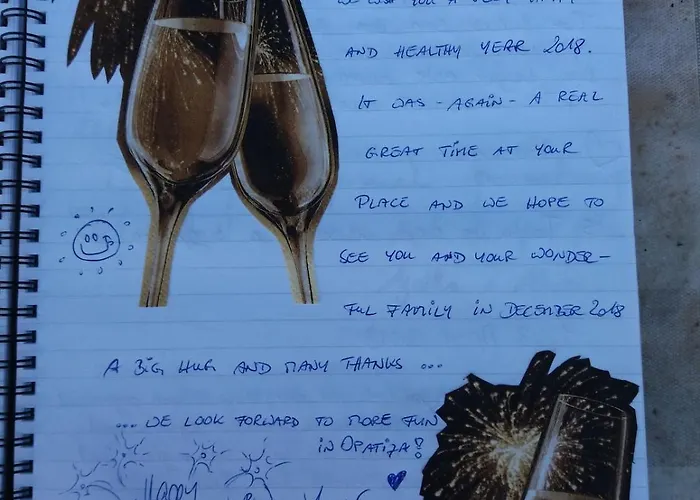 WE WISH YOU A VERY HAPPY
AND HEALTHY YEAR 2018.
IT WAS - AGAIN - A REAL
GREAT TIME AT YOUR
PLACE AND WE HOPE TO
SEE YOU AND YOUR WONDER-
FUL FAMILY IN DECEMBER 2018
A BIG HUG AND MANY THANKS ...
... WE LOOK FORWARD TO MORE FUN
IN OPATIJA!
Happy